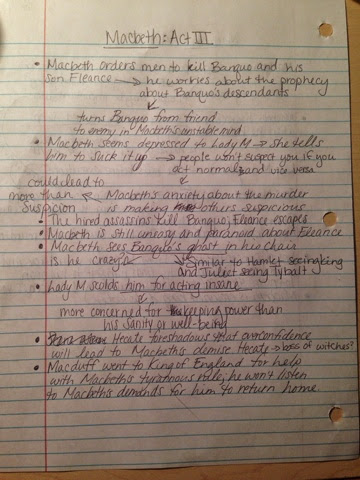 Macbeth: Act III
• Macbeth orders men to kill Banquo and his
son Fleance → he worries about the prophecy
about Banquo's descendants
↙
turns Banquo from friend
to enemy in Macbeth's unstable mind
• Macbeth seems depressed to Lady M → She tells
him to suck it up → people won't suspect you if you
act normal, and vice versa
could lead to
more than suspicion ← Macbeth's anxiety about the murder
is making others suspicious
• The hired assassins kill Banquo, Fleance escapes
• Macbeth is still uneasy and paranoid about Fleance
• Macbeth sees Banquo's ghost in his chair
is he crazy? ↘ Similar to Hamlet seeing king
and Juliet seeing Tybalt
• Lady M scolds him for acting insane
↓
more concerned for keeping power than
his sanity or well-being
• Hecate foreshadows that overconfidence
will lead to Macbeth's demise. Hecate → boss of witches?
• Macduff went to King of England for help
with Macbeth's tyrannous rule, he won't listen
to Macbeth's demands for him to return home